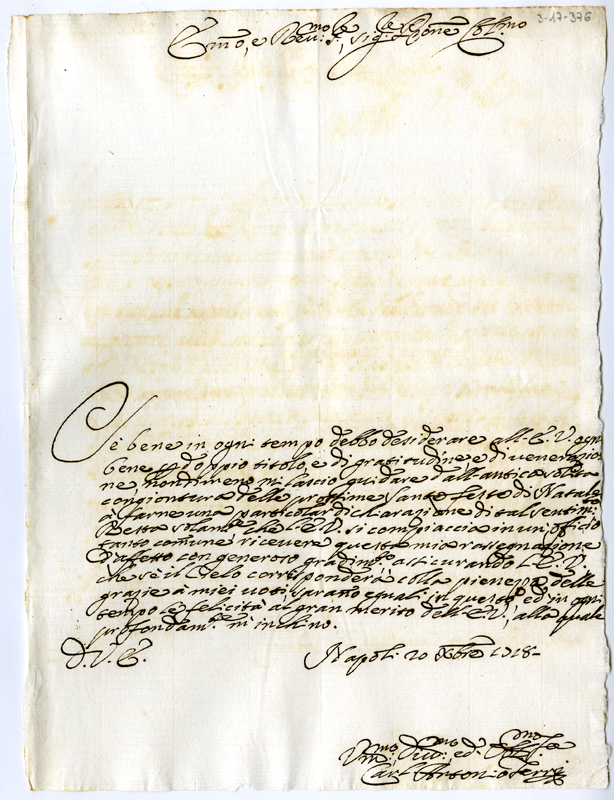 3-17-376
Em̃o, e Reu:mo Sig:re Pr̃one Col:mo
Se bene in ogni tempo debbo desiderare all'E. V. ogni
bene doppio titolo, e di gratitudine e di venerazio-
ne, nondimeno mi lascio guidare dall'antica solita
congiontura delle prossime Sante feste di Natale
à farne una particolar dichiarazione di tal sentim:
Resta solamte che l'E. V. si compiaccia in un officio
tanto comune ricevere questa mia rassegnazione
d'affetto con generoso gradimto, assicurando l'E. V.
che se il Cielo corrisponderà colla pienezza delle
grazie à miei voti saranno equali in questo ed in ogni
tempo le felicità al gran merito dell'E. V., alla quale
profondamte m'inchino.
D. V. E.
Napoli 20 Xbre 1718-
Vmmo Diumo ed Obblmo Sre
Carl'Anton:o